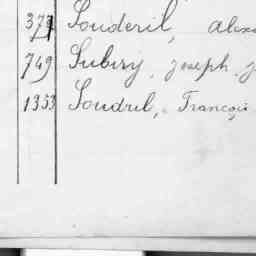 373 Souderil, Alex
749 Subisy, Joseph, J
1353 Soudril, Françoi